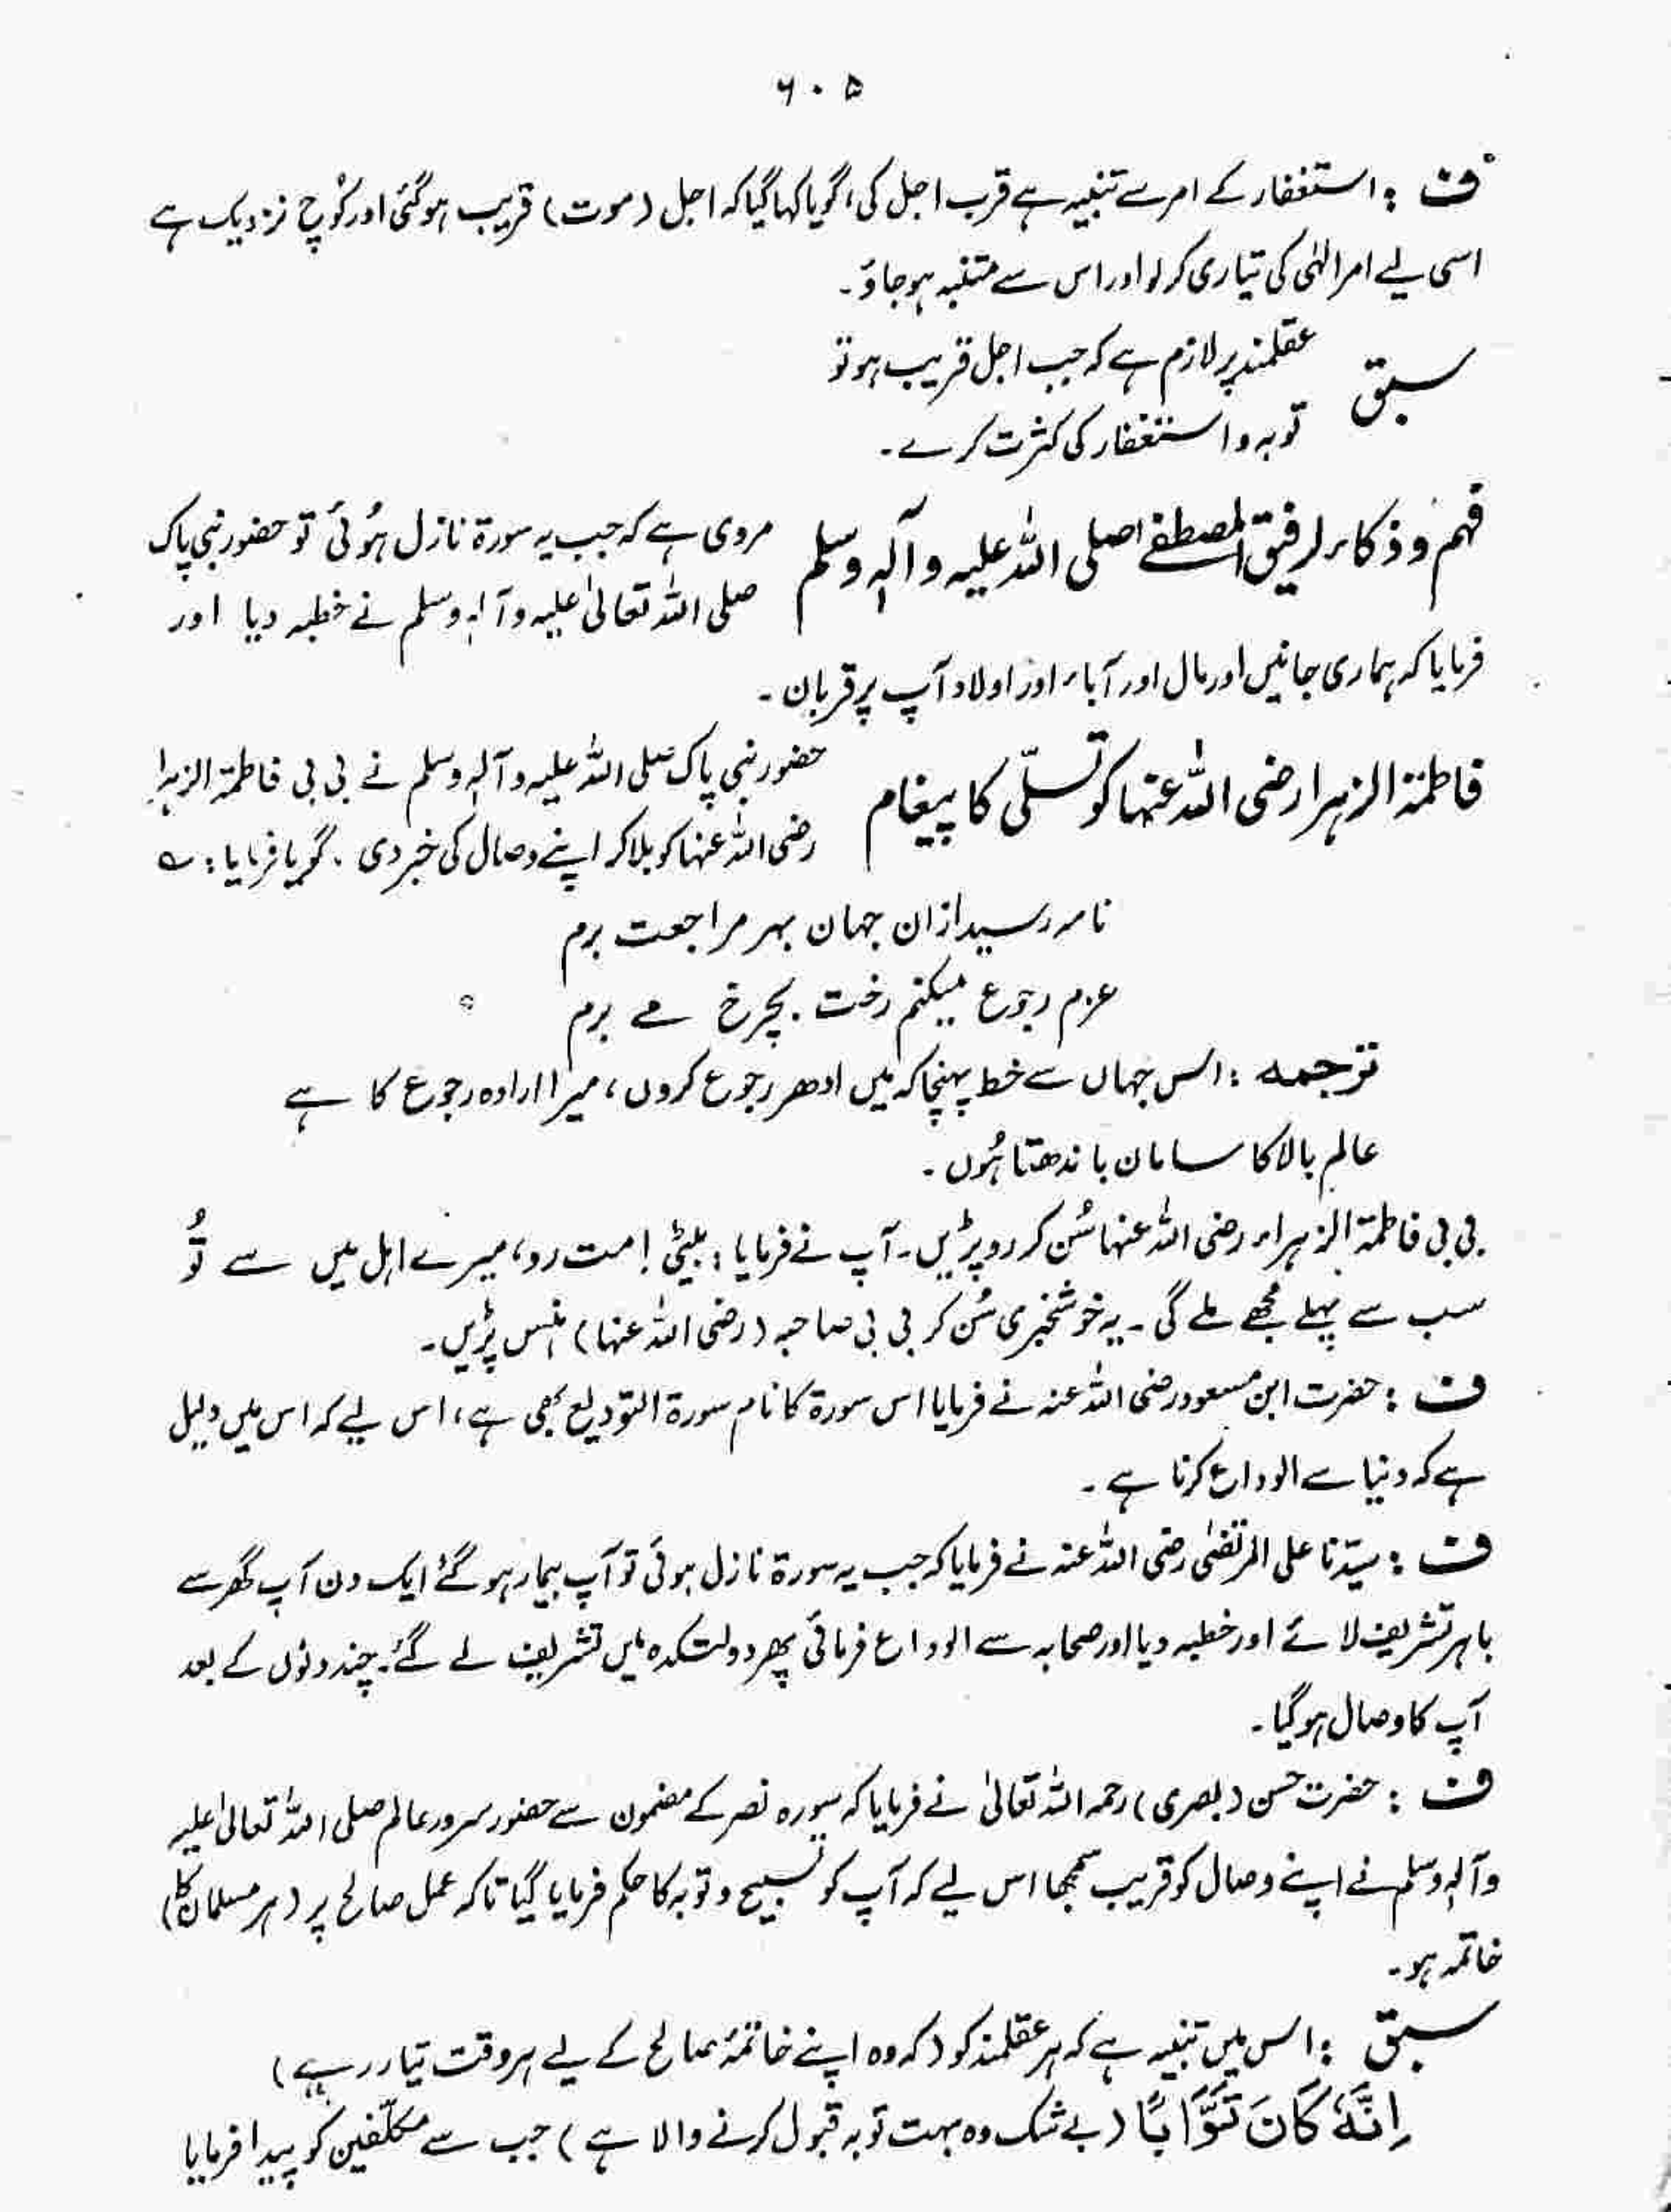 ۶۰۵
ف : استغفار کے امر سے تنبیہ ہے قرب اجل کی، گویا کہا گیا کہ اجل (موت) قریب ہوگئی اور کُوچ نزدیک ہے
اسی لیے امر الٰہی کی تیاری کر لو اور اس سے متنبہ ہوجاؤ۔
سبق عقلمند پر لازم ہے کہ جب اجل قریب ہو تو
توبہ و استغفار کی کثرت کرے۔
فہم و ذکاء لرفیق المصطفےٰ صلی اللہ علیہ وآلہٖ وسلم مروی ہے کہ جب یہ سورۃ نازل ہُوئی تو حضور نبی پاک
صلی اللہ تعالیٰ علیہ وآلہٖ وسلم نے خطبہ دیا اور
فرمایا کہ ہماری جانیں اور مال اور آباء اور اولاد آپ پر قربان۔
فاطمۃ الزہرا رضی اللہ عنہا کو تسلّی کا پیغام حضور نبی پاک صلی اللہ علیہ وآلہٖ وسلم نے بی بی فاطمۃ الزہرا
رضی اللہ عنہا کو بلا کر اپنے وصال کی خبر دی۔ گویا فرمایا : ؎
نامہ رسید ازان جہان بہر مراجعت برم
عزم رجوع میکنم رخت بچرخ مے برم
ترجمہ : اس جہاں سے خط پہنچا کہ میں ادھر رجوع کروں، میرا ارادہ رجوع کا ہے
عالم بالا کا سامان باندھتا ہُوں۔
بی بی فاطمۃ الزہراء رضی اللہ عنہا سُن کر رو پڑیں۔ آپ نے فرمایا : بیٹی! مت رو، میرے اہل میں سے تُو
سب سے پہلے مُجھے ملے گی۔ یہ خوشخبری سُن کر بی بی صاحبہ (رضی اللہ عنہا) ہنس پڑیں۔
ف : حضرت ابن مسعود رضی اللہ عنہ نے فرمایا اس سورۃ کا نام سورۃ التودیع بھی ہے، اس لیے کہ اس میں دلیل
ہے کہ دنیا سے الوداع کرنا ہے۔
ف : سیّدنا علی المرتضیٰ رضی اللہ عنہ نے فرمایا کہ جب یہ سورۃ نازل ہوئی تو آپ بیمار ہو گئے ایک دن آپ گھر سے
باہر تشریف لائے اور خطبہ دیا اور صحابہ سے الوداع فرمائی پھر دولت کدہ میں تشریف لے گئے۔ چند دنوں کے بعد
آپ کا وصال ہوگیا۔
ف : حضرت حسن (بصری) رحمہ اللہ تعالیٰ نے فرمایا کہ سورہ نصر کے مضمون سے حضور سرور عالم صلی اللہ تعالیٰ علیہ
وآلہٖ وسلم نے اپنے وصال کو قریب سمجھا اس لیے کہ آپ کو تسبیح و توبہ کا حکم فرمایا گیا تاکہ عمل صالح پر (ہر مسلمان کا)
خاتمہ ہو۔
سبق : اس میں تنبیہ ہے کہ ہر عقلمند کو (کہ وہ اپنے خاتمۂ صالح کے لیے ہر وقت تیار رہے)
اِنَّہٗ کَانَ تَوَّابًا (بے شک وہ بہت توبہ قبول کرنے والا ہے) جب سے مکلّفین کو پیدا فرمایا